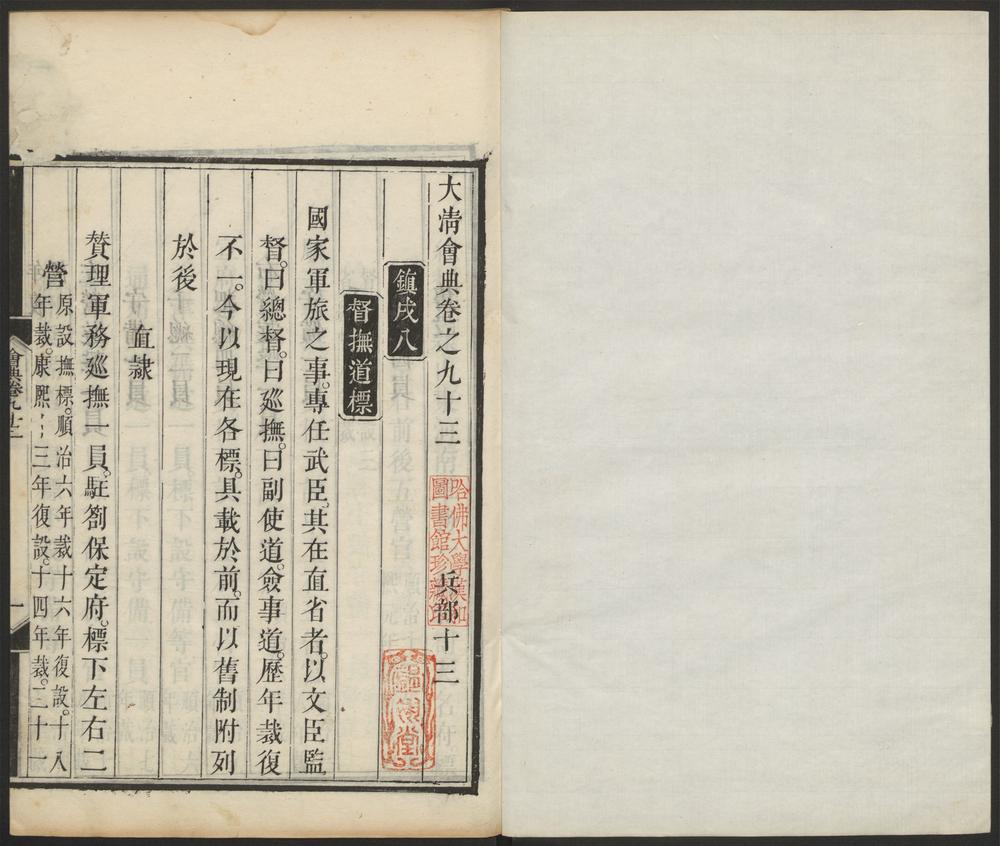 大淸會典卷之九十三 兵部十三
哈佛大學漢和
圖書館珍藏印
鎭戍八
督撫道標
國家軍旅之事專任武臣其在直省者以文臣監
督曰總督曰巡撫曰副使道僉事道歷年裁復
不一今以現在各標具載於前而以舊制附列
於後
直隸
贊理軍務巡撫一員駐劄保定府標下左右二
營
原設撫標順治六年裁十六年復設十八
年裁康熙 三年復設十四年裁三十一
會典卷九十三
一